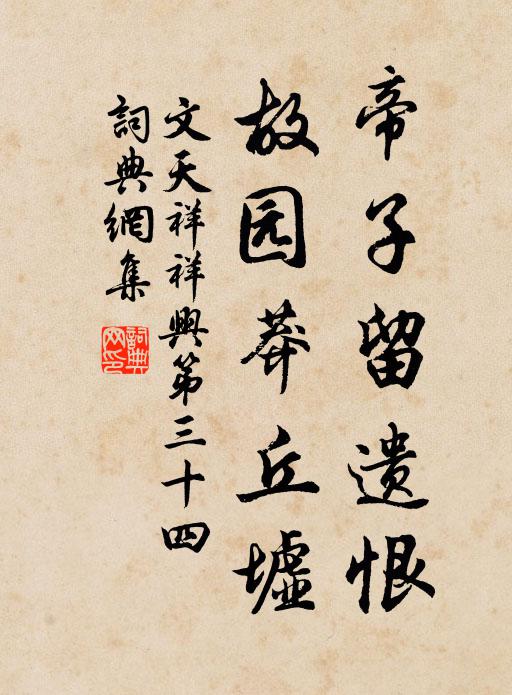 帝子留遗恨
故园莽丘墟
文天祥祥興第三十四
詞典網集
詞典網印